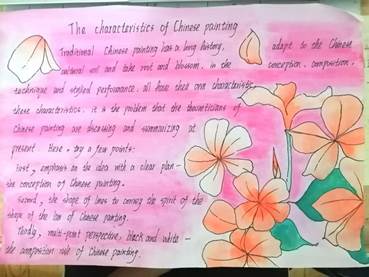 The characteristics of Chinese painting
Traditional Chinese painting has a long history, adapt to the Chinese
cultural soil and take root and blossom. in the conception. composition.
technique and styled performance. all have their own characteristic
these characteristics. it is the problem that the theoreticians of
Chinese painting are discussing and summarizing at
present. Here. try a few points:
First, emphasis on the idea with a clear plan—
the conception of Chinese painting.
Second, the shape of lines to convey the spirit of the
shape of the law of Chinese painting.
Thirdly, multi-point perspective, black and white —
the composition rule of Chinese painting.